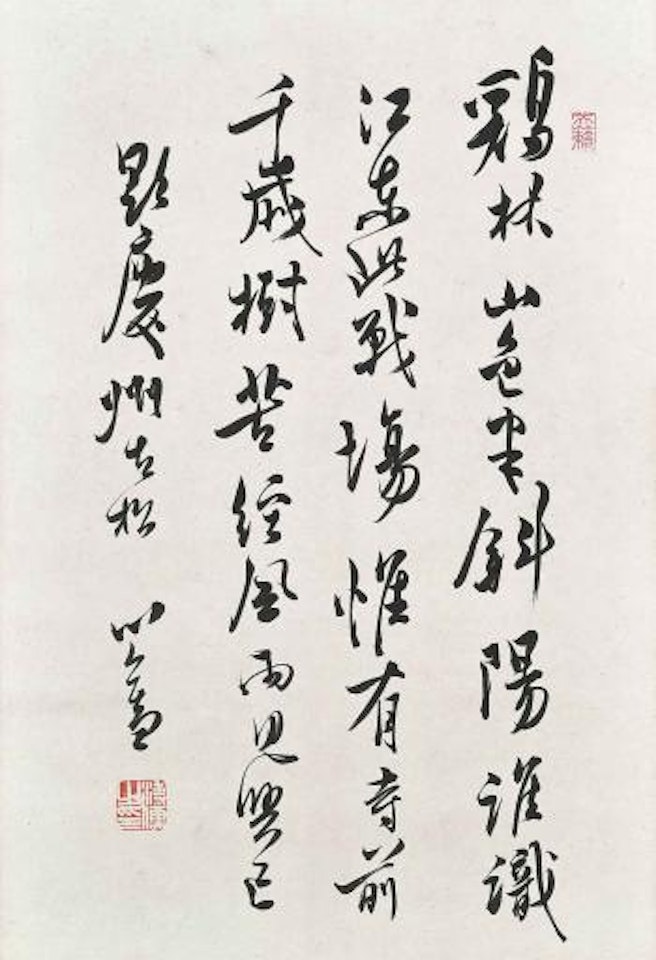 鷄林山色半斜陽誰識
江東此戰場惟有寺前
千歲樹苦經風雨見興亡
題慶州古松 心畬